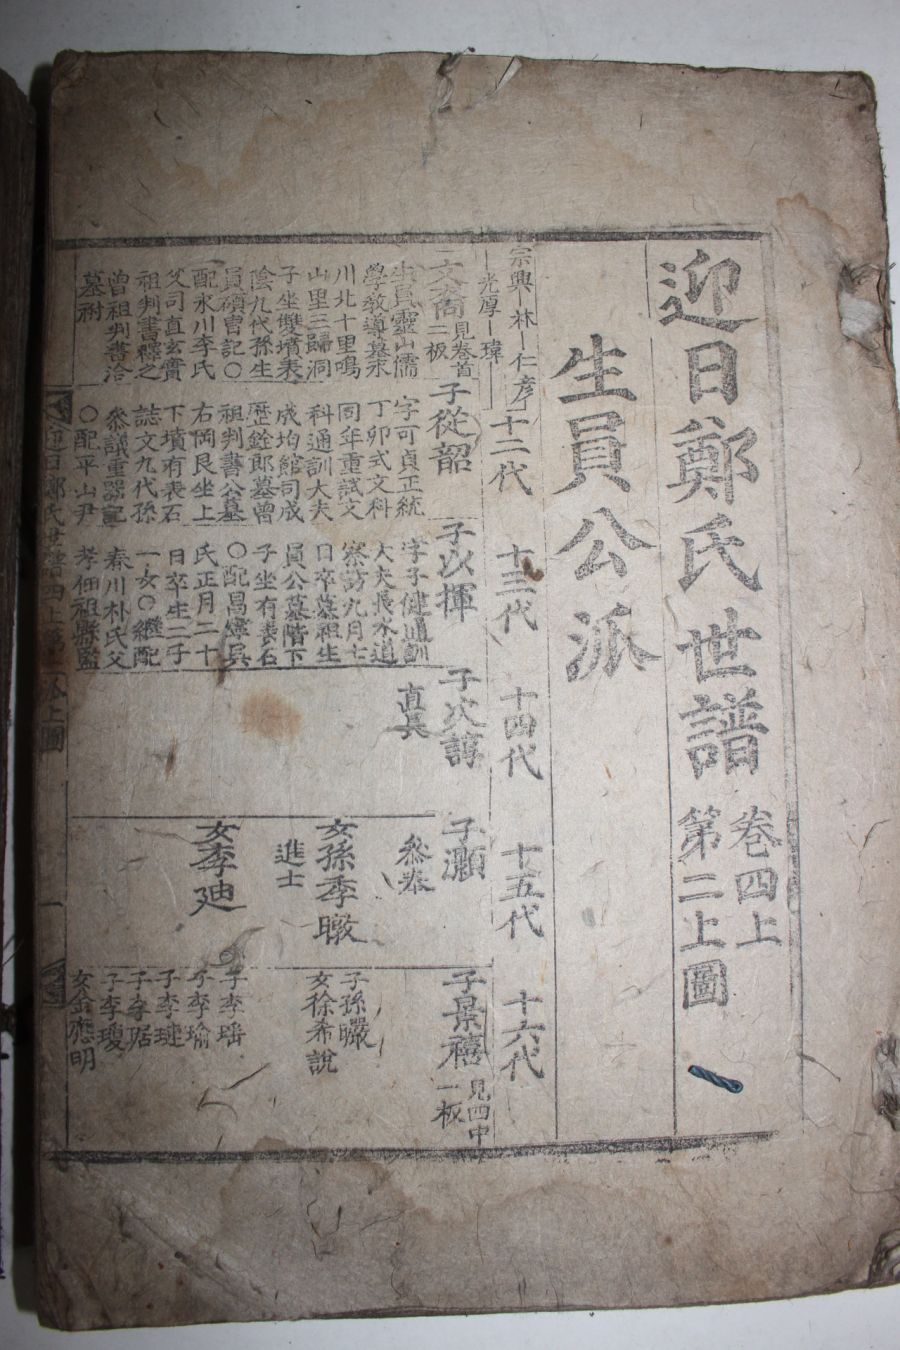 迎日鄭氏世譜
卷四上
第二上圖
生員公派
宗興ー林ー仁彦
ー光厚ー瑋ー
十二代
十三代
十四代
十五代
十六代
文裔
見卷首
二板
生員靈山儒
學敎導墓永
川北十里鳴
山里三歸洞
子坐雙墳表
陰九代孫生
員碩曾記○
配永川李氏
父司直玄實
祖判書釋之
曾祖判書洽
墓祔
子從韶
字可貞正統
丁卯式文科
同年重試文
科通訓大夫
成均館司成
歷銓郎墓曾
祖判書公墓
右岡艮坐上
下墳有表石
誌文九代孫
參議重器記
○配平山尹
子以揮
字子健通訓
大夫長水道
察訪九月七
日卒墓祖生
員公墓階下
子坐有表石
○配昌寧吳
氏正月二十
日卒生二子
一女○繼配
秦川朴氏父
孝佃祖縣監
子次諄
直長
子灝
參奉
女孫季暾
進士
女李廸
子景禧
見四中
一板
子孫曮
女徐希說
子李瑎
子李瑜
子李璉
子李琚
子李瓊
女金應明
迎日鄭氏世譜
四上
一